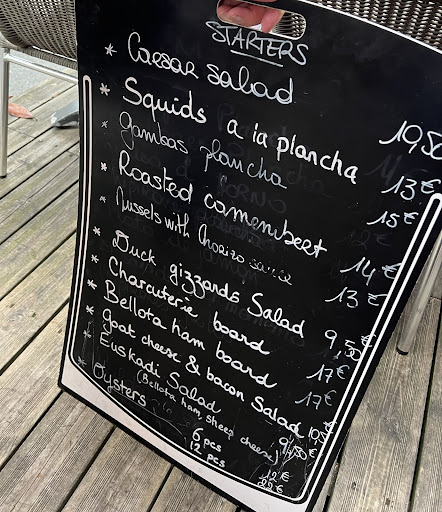 STARTERS
* Caesar salad 19,50
* Squids a la plancha 13€
* Gambas plancha 15€
* Roasted camembert 14€
* Mussels with Chorizo sauce 13€
* Duck gizzards Salad 9,50€
* Charcuterie board 17€
* Bellota ham board 17€
* goat cheese & bacon Salad
* Euskadi Salad
(Bellota ham, sheep cheese) 9,50€
* Oysters
6 pcs 12€
12 pcs 22€